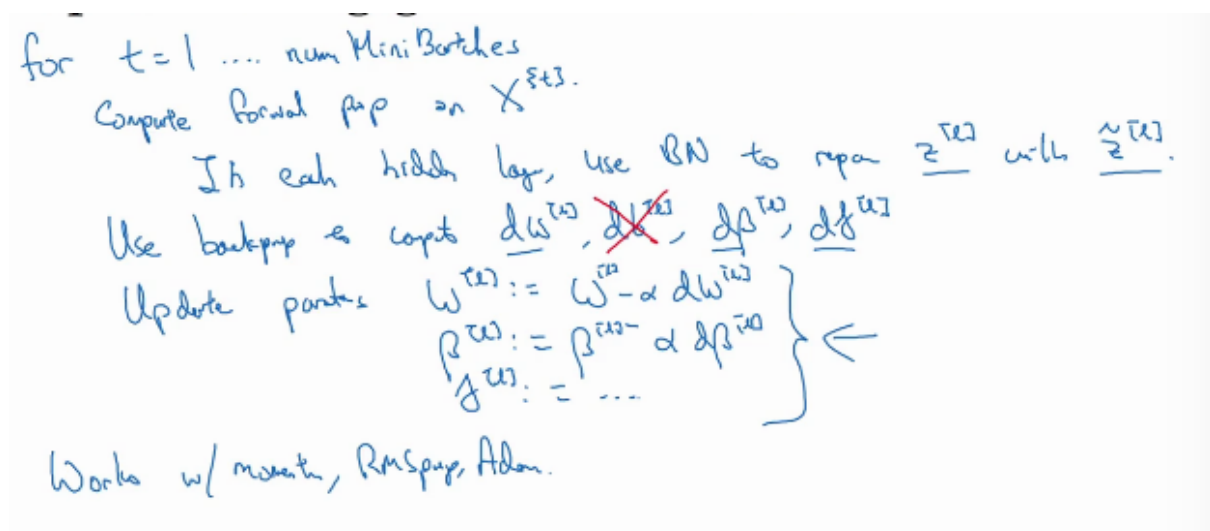 for t = 1 .... num Mini Batches
Compute forward prop on X^{t}.
In each hidden layer, use BN to replace z^[l] with z̃^[l].
Use backprop to compute dw^[l], db^[l], dβ^[l], dγ^[l]
Update parameters w^[l] := w^[l] - α dw^[l]
β^[l] := β^[l] - α dβ^[l]
γ^[l] := ...
Works w/ momentum, RMSprop, Adam.